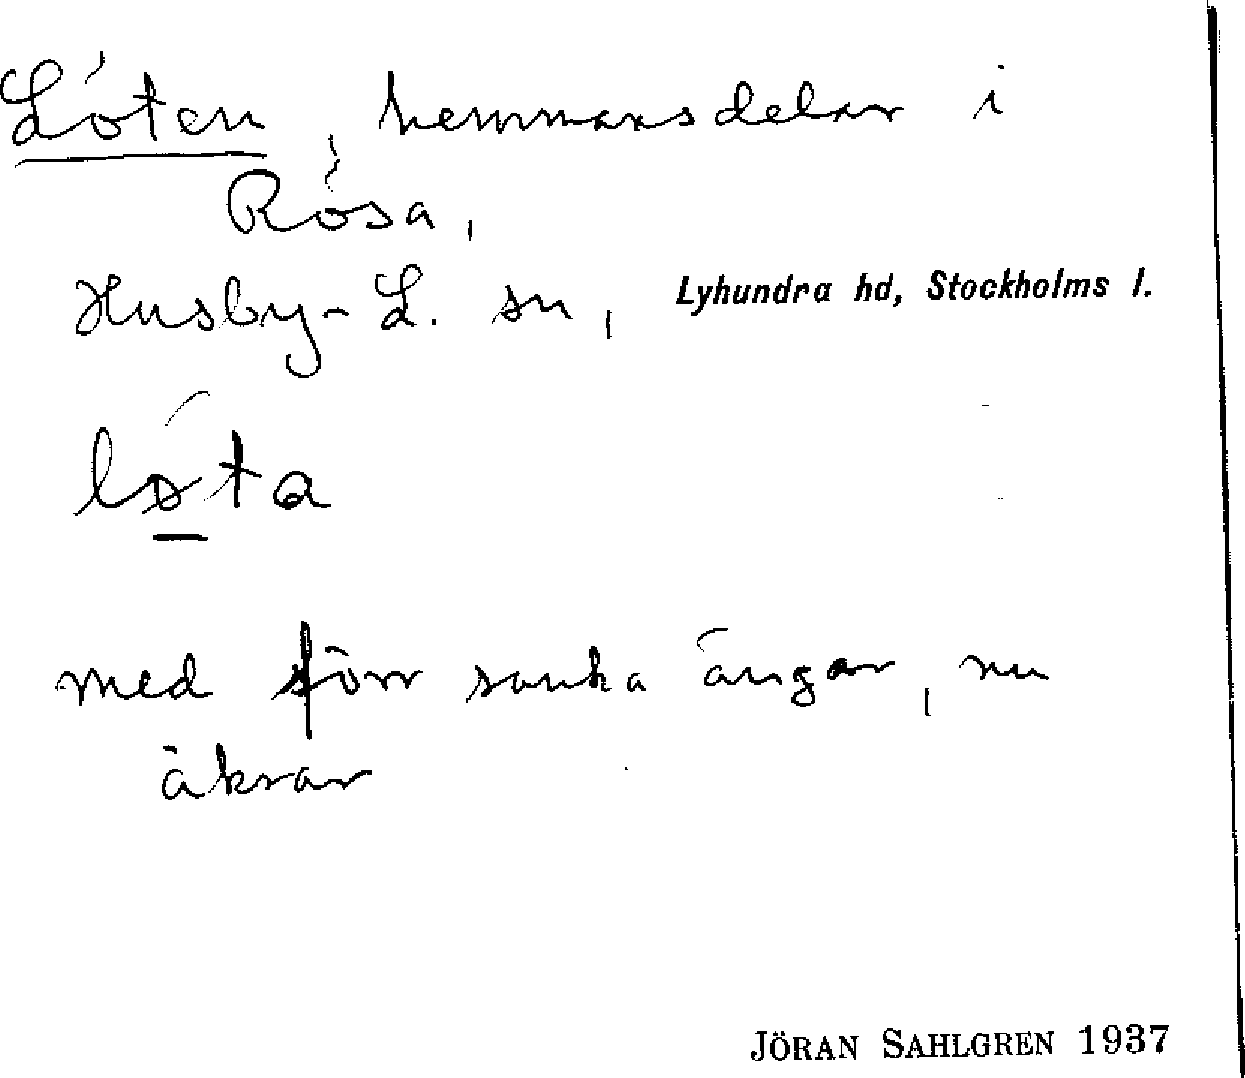 Löten, hemmansdelar i
Rösa,
Husby-L. sn, Lyhundra hd, Stockholms l.
lǿ̱ta
med förr sanka ängar, nu
åkrar
JÖRAN SAHLGREN 1937